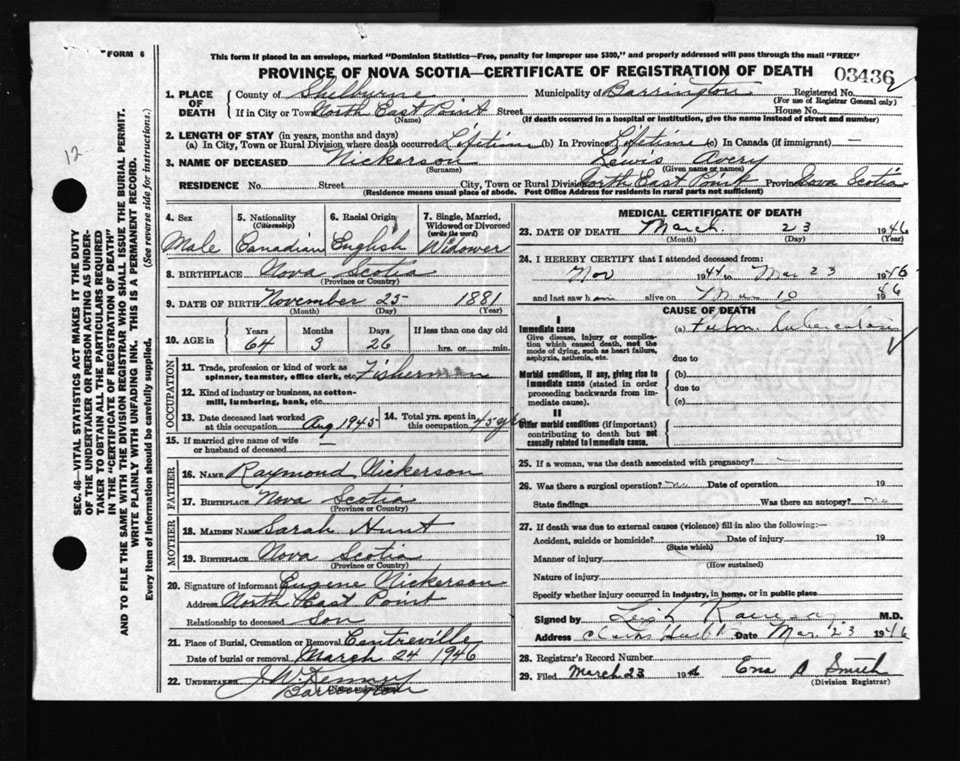 FORM 6
This form if placed in an envelope, marked "Dominion Statistics—Free, penalty for improper use $300," and properly addressed will pass through the mail "FREE"
PROVINCE OF NOVA SCOTIA—CERTIFICATE OF REGISTRATION OF DEATH 03436
1. PLACE OF DEATH
County of Shelburne Municipality of Barrington Registered No.
(For use of Registrar General only)
If in City or Town North East Point Street House No.
(Name) (If death occurred in a hospital or institution, give the name instead of street and number)
2. LENGTH OF STAY (in years, months and days)
(a) In City, Town or Rural Division where death occurred Lifetime (b) In Province Lifetime (c) In Canada (if immigrant) —
3. NAME OF DECEASED Nickerson Lewis Avery
(Surname) (Given name or names)
RESIDENCE No. Street City, Town or Rural Division North East Point Province Nova Scotia
(Residence means usual place of abode. Post Office Address for residents in rural parts not sufficient)
4. Sex Male
5. Nationality (Citizenship) Canadian
6. Racial Origin English
7. Single, Married, Widowed or Divorced (write the word) Widower
8. BIRTHPLACE Nova Scotia
(Province or Country)
9. DATE OF BIRTH November 25 1881
(Month) (Day) (Year)
10. AGE in Years 64 Months 3 Days 26 If less than one day old hrs. or min.
OCCUPATION
11. Trade, profession or kind of work as spinner, teamster, office clerk, etc. Fisherman
12. Kind of industry or business, as cotton-mill, lumbering, bank, etc.
13. Date deceased last worked at this occupation Aug 1945
14. Total yrs. spent in this occupation 45 yrs
15. If married give name of wife or husband of deceased —
FATHER
16. NAME Raymond Nickerson
17. BIRTHPLACE Nova Scotia
MOTHER
18. MAIDEN NAME Sarah Hunt
19. BIRTHPLACE Nova Scotia
(Province or Country)
20. Signature of informant Eugene Nickerson
Address North East Point
Relationship to deceased Son
21. Place of Burial, Cremation or Removal Centreville
Date of burial or removal March 24 1946
22. UNDERTAKER J. W. Kenney
Barrington
MEDICAL CERTIFICATE OF DEATH
23. DATE OF DEATH March 23 1946
(Month) (Day) (Year)
24. I HEREBY CERTIFY that I attended deceased from:
Nov 1944 to Mar 23 1946
and last saw him alive on Mar 10 1946
CAUSE OF DEATH
I
Immediate cause
(a) Pulm. Tuberculosis
Give disease, injury or complication which caused death, not the mode of dying, such as heart failure, asphyxia, asthenia, etc.
due to
Morbid conditions, if any, giving rise to immediate cause (stated in order proceeding backwards from immediate cause).
(b)
due to
(c)
II
Other morbid conditions (if important) contributing to death but not causally related to immediate cause.
25. If a woman, was the death associated with pregnancy?
26. Was there a surgical operation? No Date of operation 19
State findings Was there an autopsy? No
27. If death was due to external causes (violence) fill in also the following:—
Accident, suicide or homicide? Date of injury 19
(State which)
Manner of injury
(How sustained)
Nature of injury
Specify whether injury occurred in industry, in home, or in public place
Signed by M.D.
Address Clarks Date Mar. 23 1946
28. Registrar's Record Number
29. Filed March 23 1946 Ena A Smith
(Division Registrar)
12.
SEC. 46—VITAL STATISTICS ACT MAKES IT THE DUTY
OF THE UNDERTAKER OR PERSON ACTING AS UNDER-
TAKER TO OBTAIN ALL THE PARTICULARS REQUIRED
IN THE "CERTIFICATE OF REGISTRATION OF DEATH"
AND TO FILE THE SAME WITH THE DIVISION REGISTRAR WHO SHALL ISSUE THE BURIAL PERMIT.
WRITE PLAINLY WITH UNFADING INK. THIS IS A PERMANENT RECORD.
Every item of information should be carefully supplied. (See reverse side for instructions.)